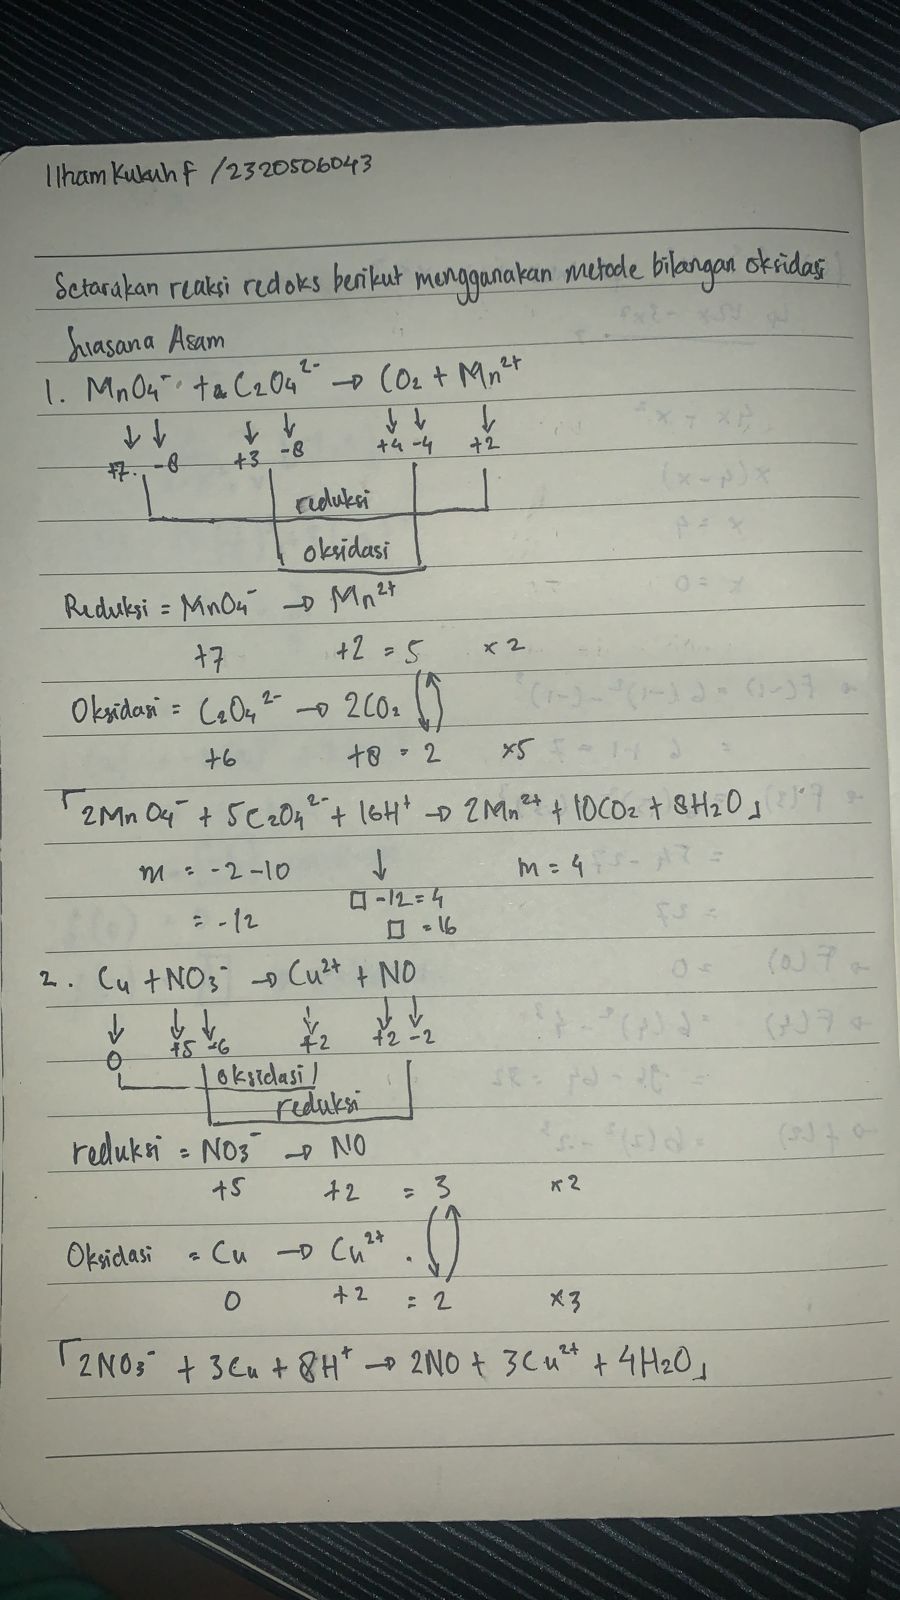 Ilham Kukuh F / 2320506043
Setarakan reaksi redoks berikut menggunakan metode bilangan oksidasi
Suasana Asam
1. MnO₄⁻ + C₂O₄²⁻ → CO₂ + Mn²⁺
+7 -8 +3 -8 +4 -4 +2
reduksi
oksidasi
Reduksi = MnO₄⁻ → Mn²⁺
+7 +2 = 5 × 2
Oksidasi = C₂O₄²⁻ → 2CO₂
+6 +8 = 2 ×5
「2MnO₄⁻ + 5C₂O₄²⁻ + 16H⁺ → 2Mn²⁺ + 10CO₂ + 8H₂O」
m = -2-10 ↓ m = 4
□ -12 = 4
= -12 □ = 16
2. Cu + NO₃⁻ → Cu²⁺ + NO
0 +5 -6 +2 +2 -2
oksidasi
reduksi
reduksi = NO₃⁻ → NO
+5 +2 = 3 ×2
Oksidasi = Cu → Cu²⁺
0 +2 = 2 ×3
「2NO₃⁻ + 3Cu + 8H⁺ → 2NO + 3Cu²⁺ + 4H₂O」